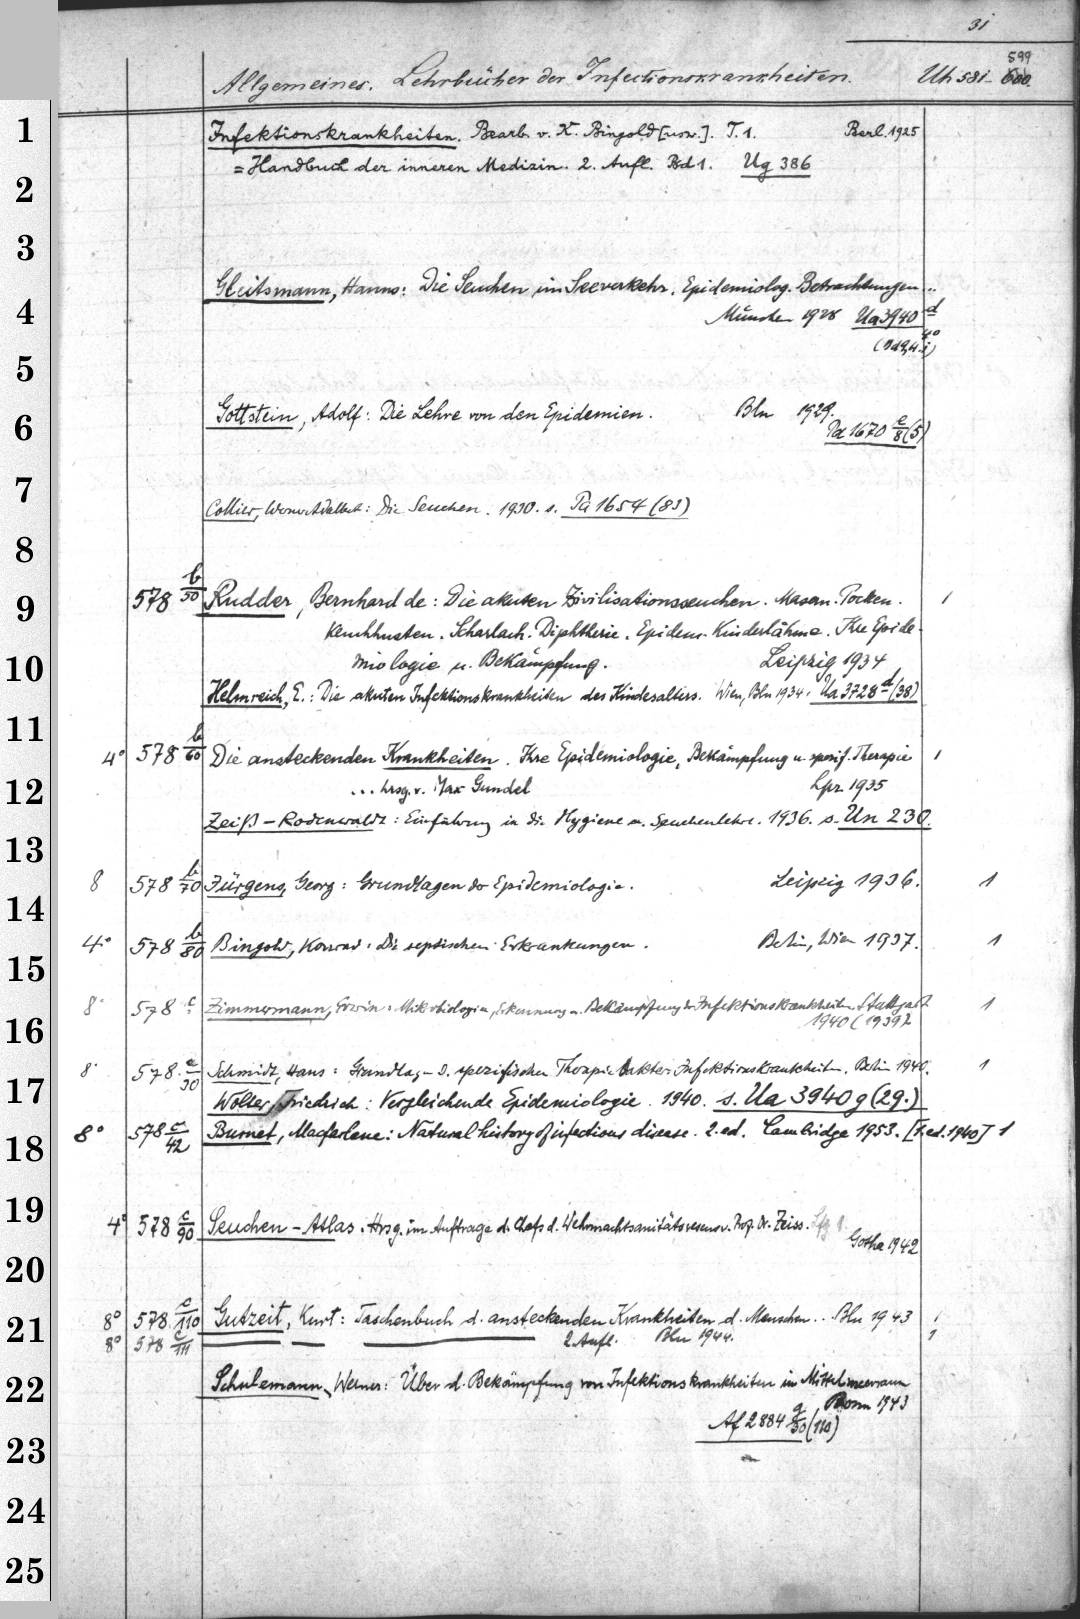 31
599
Allgemeines. Lehrbücher der Infectionskrankheiten. Uh 581-600.
1
Infektionskrankheiten. Bearb. v. K. Bingold [usw.]. T. 1. Berl. 1925
= Handbuch der inneren Medizin. 2. Aufl. Bd 1. Ug 386
2
3
Gleitsmann, Hanns: Die Seuchen im Seeverkehr. Epidemiolog. Betrachtungen...
4
München 1928 Ua 3940 d
4°
5
Gottstein, Adolf: Die Lehre von den Epidemien. Bln 1929.
6
Pa 1670 e/8 (5)
7
Collier, Werner Adalbert: Die Seuchen. 1930. s. Pa 1654 (83)
8
9
578 b/50 Rudder, Bernhard de: Die akuten Zivilisationsseuchen. Masern. Pocken. 1
Keuchhusten. Scharlach. Diphtherie. Epidem. Kinderlähme. Ihre Epide-
10
miologie u. Bekämpfung. Leipzig 1934
Helmreich, E.: Die akuten Infektionskrankheiten des Kindesalters. Wien, Bln 1934. Ua 3728 d (38)
11
4° 578 b/60 Die ansteckenden Krankheiten. Ihre Epidemiologie, Bekämpfung u. spezif. Therapie 1
12
... hrsg. v. Max Gundel Lpz. 1935
Zeiß-Rodenwaldt: Einführung in die Hygiene u. Seuchenlehre. 1936. s. Un 230.
13
8 578 b/70 Jürgens, Georg: Grundlagen der Epidemiologie. Leipzig 1936. 1
14
4° 578 b/80 Bingold, Konrad: Die septischen Erkrankungen. Berlin, Wien 1937. 1
15
8° 578 c Zimmermann, Erwin: Mikrobiologie, Erkennung u. Bekämpfung der Infektionskrankheiten. Stuttgart 1
16
1940 (1939)
8° 578 c/30 Schmidt, Hans: Grundlagen d. spezifischen Therapie bakter. Infektionskrankheiten. Berlin 1940. 1
17
Wolter, Friedrich: Vergleichende Epidemiologie. 1940. s. Ua 3940 g (29.)
8° 578 c/42 Burnet, Macfarlane: Natural history of infectious disease. 2. ed. Cambridge 1953. [1. ed. 1940] 1
18
19
4° 578 c/90 Seuchen-Atlas. Hrsg. im Auftrage d. Chefs d. Wehrmachtsanitätswesens v. Prof. Dr. Zeiss. Lfg 1.
Gotha 1942
20
8° 578 c/110 Gutzeit, Kurt: Taschenbuch d. ansteckenden Krankheiten d. Menschen.. Bln 1943 1
21
8° 578 c/111 2. Aufl. Bln 1944. 1
22
Schulemann, Werner: Über d. Bekämpfung von Infektionskrankheiten im Mittelmeerraum
Bonn 1943
Af 2884 g/50 (110)
23
24
25